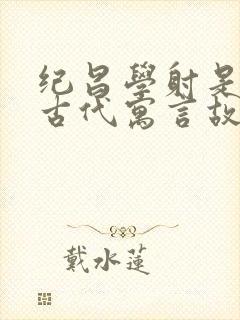 纪昌學射是
古代寓言故
戴水蓮